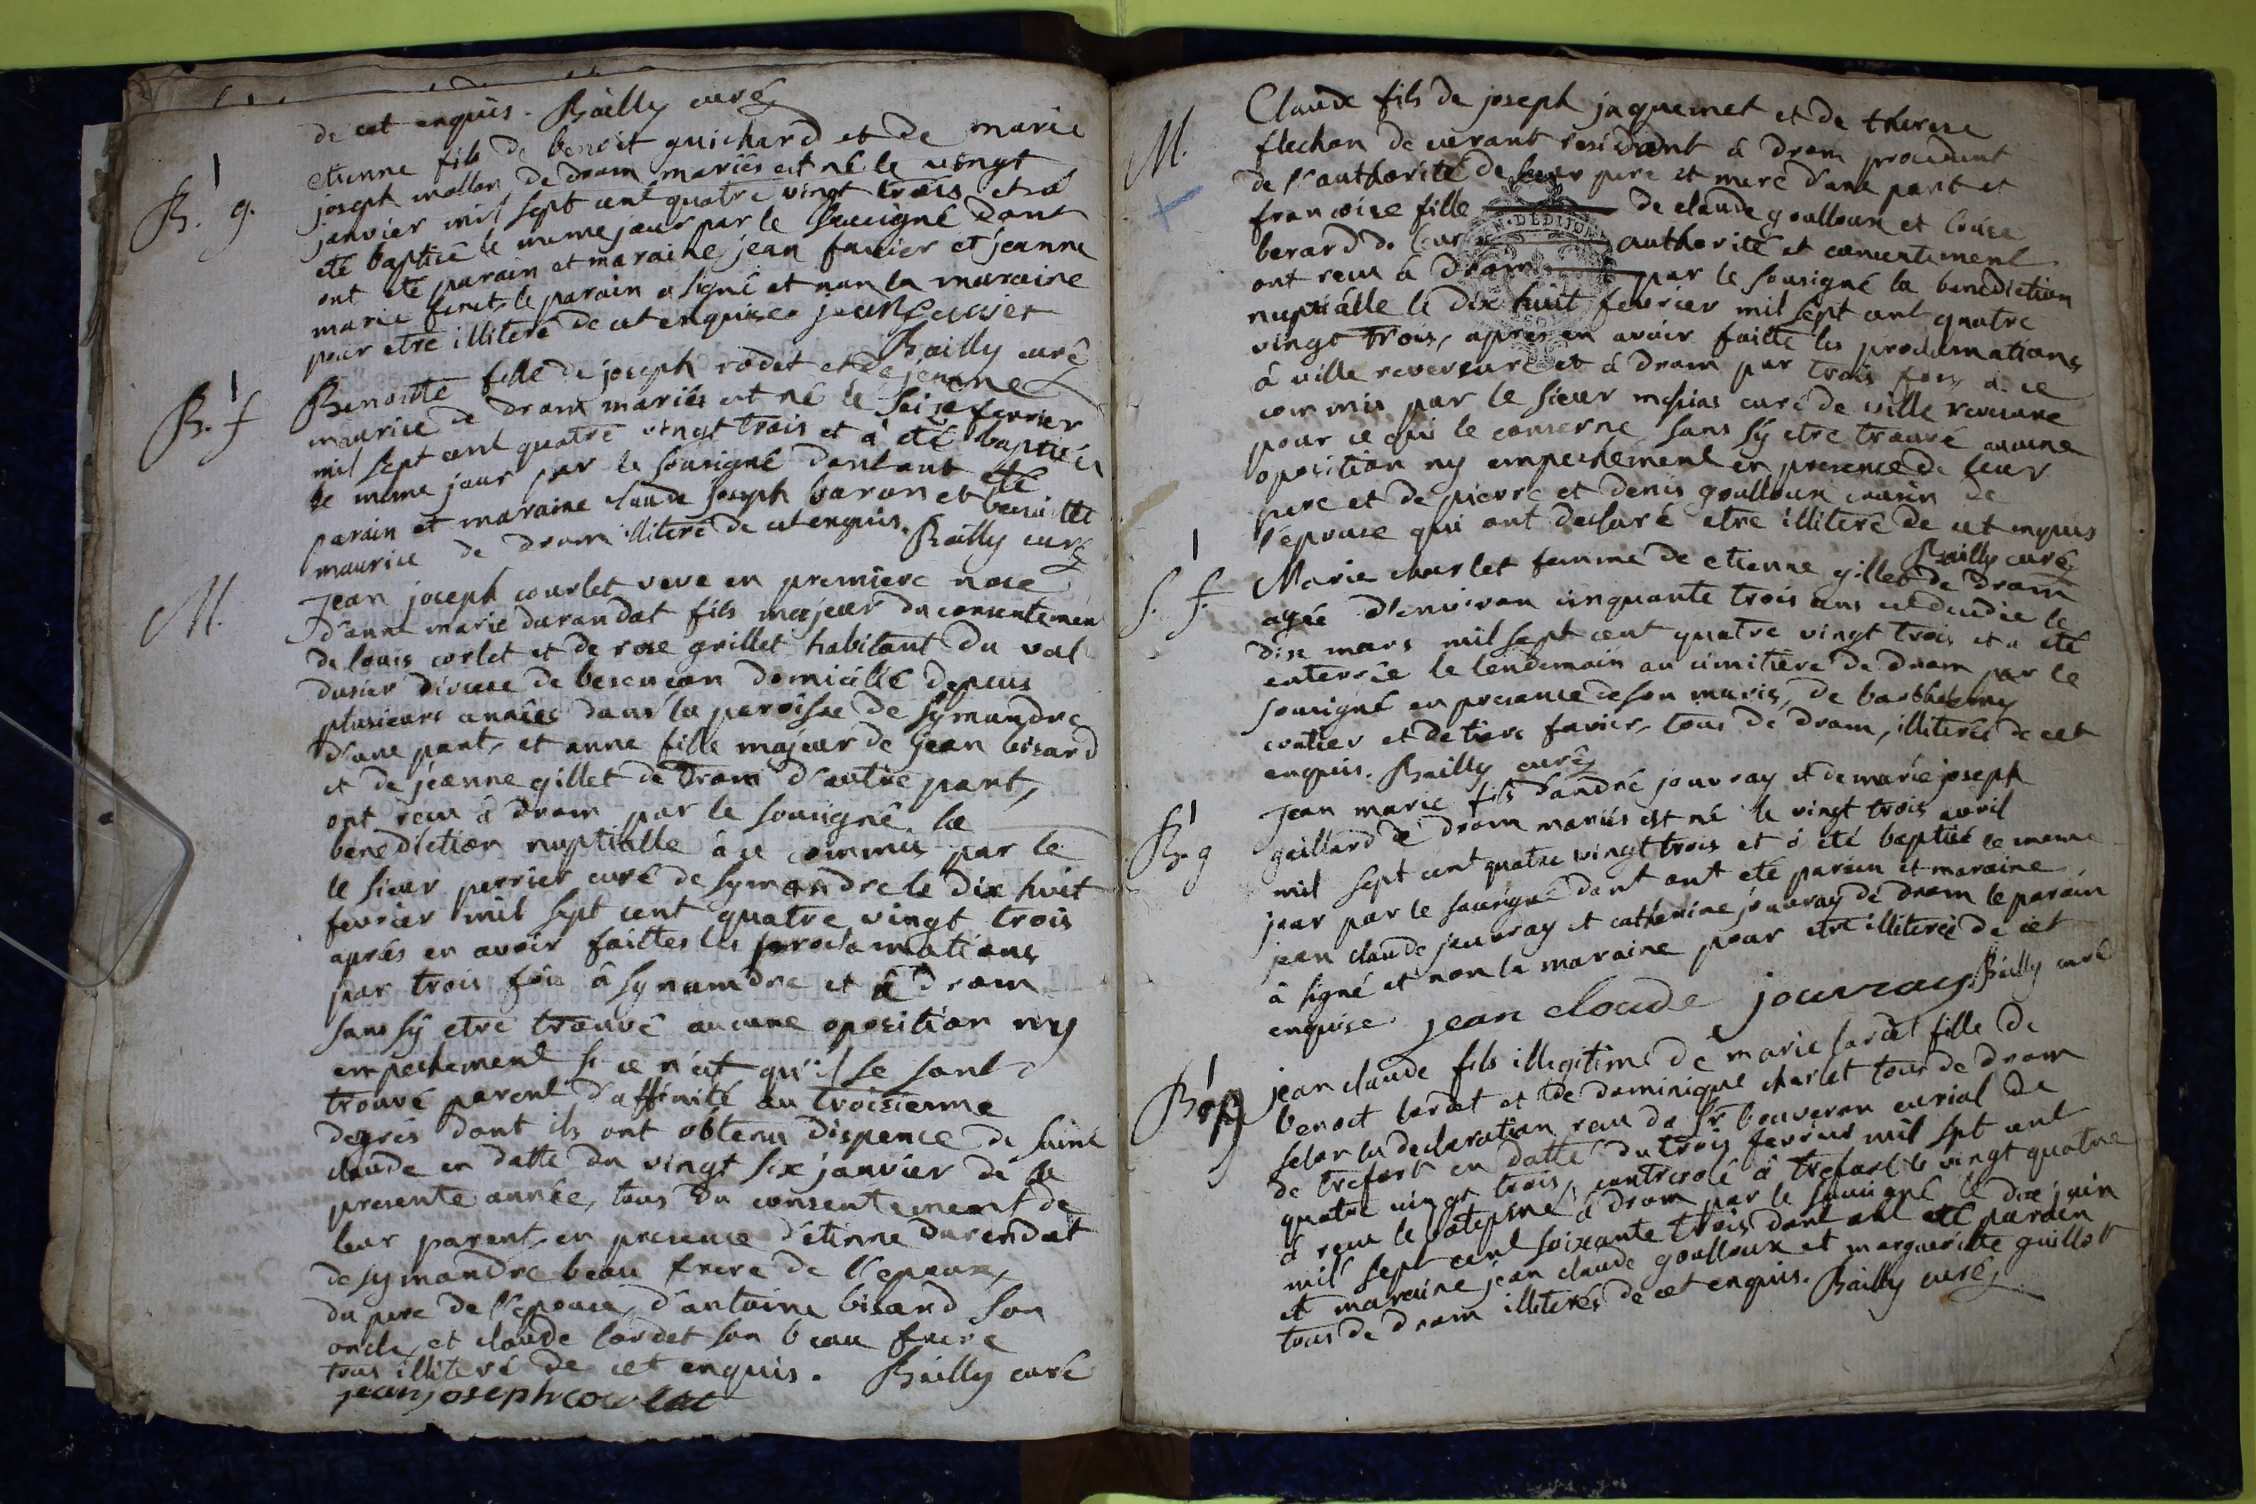 de cet enquis. Bailly curé
B. g.
etienne fils de benoit guichard et de marie
joseph mollon de drom mariés est né le vingt
janvier mil sept cent quatre vingt trois et a
eté baptisé le meme jour par le sousigné dont
ont eté parain et maraine jean favier et jeanne
marie feret le parain a signé et non la maraine
pour etre illiteré de cet enquise. jean favier
Bailly curé
B. f
Benoitte fille de joseph rodet et de jeanne
maurice de drom mariés est né le seize fevrier
mil sept cent quatre vingt trois et a eté baptisée
le meme jour par le sousigné dont ont eté
parain et maraine claude joseph varon et benoitte
maurice de drom illiteré de cet enquis. Bailly curé
M.
Jean joseph courlet veve en premiere noce
d'anne marie durandat fils majeur du consentemen
de louis corlet et de rose grillet habitant du val
dusier diocese de besencon domicilié depuis
plusieurs années dans la paroisse de symandre
d'une part, et anne fille majeur de jean bisard
et de jeanne gillet de drom d'autre part,
ont recu à drom par le sousigné la
benediction nuptialle à ce commis par le
le sieur perrier curé de symandre le dix huit
fevrier mil sept cent quatre vingt trois
aprés en avoir faittes les proclamations
par trois fois à symandre et à drom
sans sy etre trouvé aucune oposition ny
empechement si ce n'est qu'il se sont
trouvé parent d'affinité au troisieme
degrés dont ils ont obtenu dispence de saint
claude en datte du vingt six janvier de la
presente année, tous du consentement de
leur parent en presence d'etinne durendat
de symandre beau frere de l'epoux,
du pere de l'epouse, d'antoine bisard son
oncle, et claude lardet son beau frere
tous illiteré de cet enquis. Bailly curé
jean joseph courlet
M.
Claude fils de joseph jaquemet et de therese
flechon de cuerant residant à drom procedant
de l'authorité de leur pere et mere d'une part et
francoise fille de claude goulloux et louise
berard de leur authorité et consentement
ont recu à drom par le sousigné la benediction
nuptialle le dix huit fevrier mil sept cent quatre
vingt trois, apres en avoir faitte les proclamations
à ville reversure et à drom par trois fois à ce
commis par le sieur curé de ville reversure
pour ce qui le conserne sans sy etre trouvé aucune
oposition ny empechement en presence de leur
pere et de pierre et denis goulloux cousin de
l'epouse qui ont declaré etre illiteré de cet enquis
Bailly curé
S. f.
Marie charlet femme de etienne gillet de drom
agée d'environ cinquante trois ans est decedée le
dix mars mil sept cent quatre vingt trois et a eté
enterrée le lendemain au cimitiere de drom par le
sousigné en presence de son maris, de barthelemy
cretier et de favier, tous de drom, illiterés de cet
enquis. Bailly curé
B. g
Jean marie fils d'andré jouvray et de marie joseph
gaillard de drom mariés est né le vingt trois avril
mil sept cent quatre vingt trois et a eté baptisé le meme
jour par le sousigné dont ont eté parain et maraine
jean claude jouvray et catherine jouvray de drom le parain
à signé et non la maraine pour etre illiterée de cet
enquise. jean cloude jouvray Bailly curé
B. g
jean claude fils illegitime de marie lardet fille de
benoit lardet et de dominique charlet tous de drom
selon la declaration recu du Sr. bouveron curial de
de trefort en datte du trois fevrier mil sept cent
quatre vingt trois, controlé à trefort le vingt quatre
à recu le bateme à drom par le sousigné le dix juin
mil sept cent soixante trois dont ont eté parain
et maraine jean claude goulloux et margueritte guillot
tous de drom illiterés de cet enquis. Bailly curé